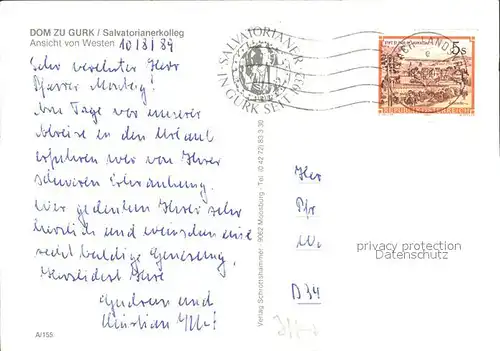 DOM ZU GURK / Salvatorianerkolleg
Ansicht von Westen 10/8/84
Sehr verehrter Herr
Pfarrer
Am Tage vor unserer
Abreise in den Urlaub
erfuhren wir von Ihrer
schweren Erkrankung.
Wir gedenken Ihrer sehr
herzlich und wünschen eine
recht baldige Genesung.
Herzlichst Ihre
Gudrun und
Christian
A/155
Verlag Schrottshammer · 9062 Moosburg · Tel. (0 42 72) 83 3 30
SALVATORIANER
IN GURK SEIT
5s
REPUBLIK ÖSTERREICH
Herr
Pfr
W
D 34
privacy protection
Datenschutz